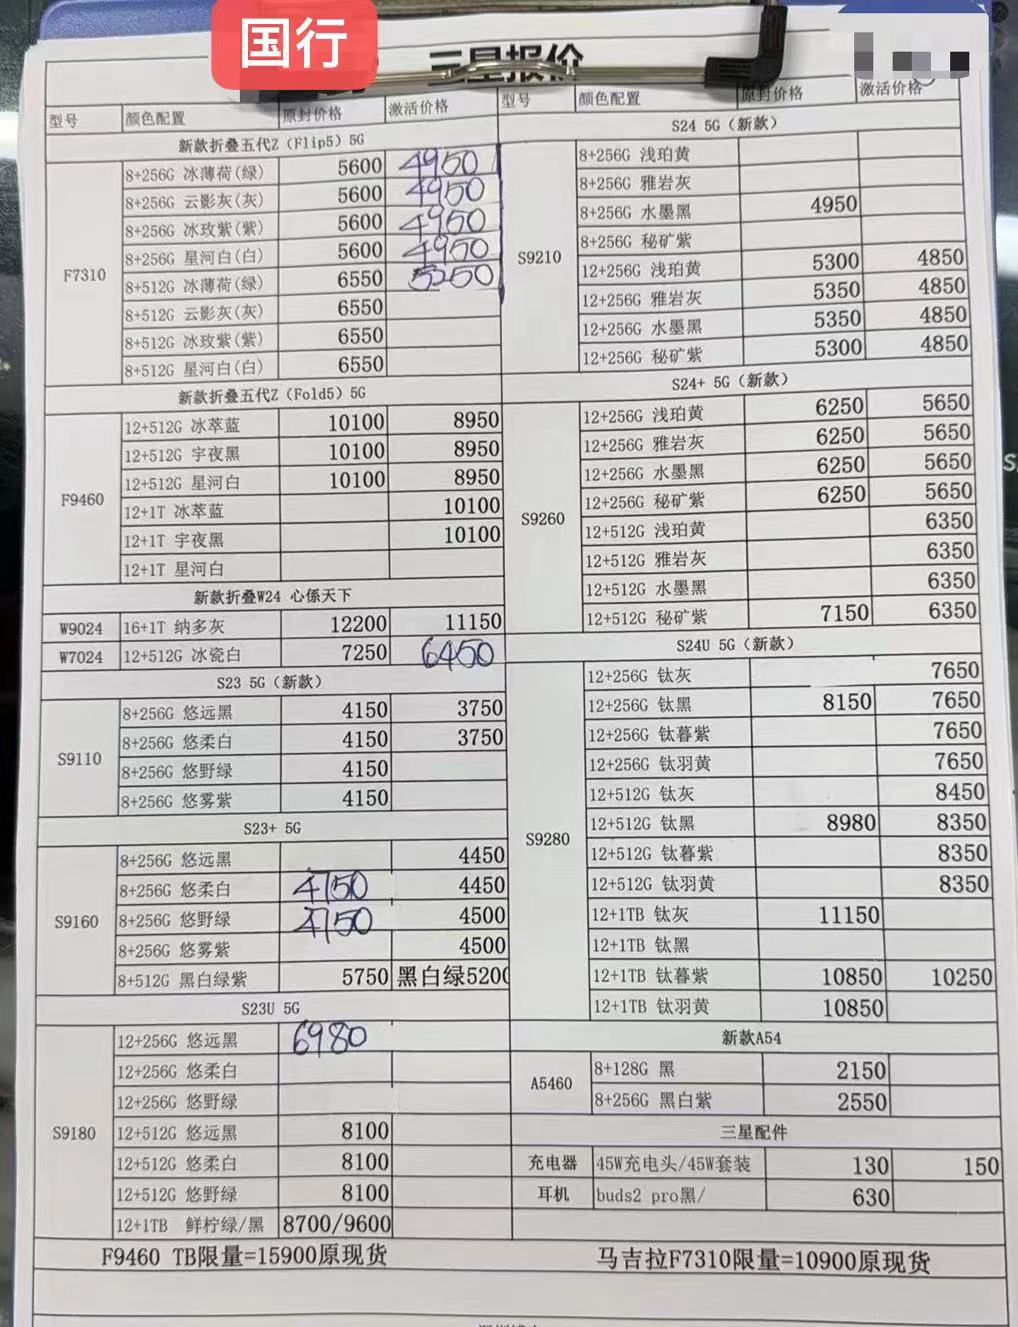 国行
三星报价
型号 颜色配置 原封价格 激活价格
新款折叠五代Z（Flip5）5G
F7310
8+256G 冰薄荷(绿) 5600 4950
8+256G 云影灰(灰) 5600 4950
8+256G 冰玫紫(紫) 5600 4950
8+256G 星河白(白) 5600 4950
8+512G 冰薄荷(绿) 6550 5350
8+512G 云影灰(灰) 6550
8+512G 冰玫紫(紫) 6550
8+512G 星河白(白) 6550
新款折叠五代Z（Fold5）5G
F9460
12+512G 冰萃蓝 10100 8950
12+512G 宇夜黑 10100 8950
12+512G 星河白 10100 8950
12+1T 冰萃蓝 10100
12+1T 宇夜黑 10100
12+1T 星河白
新款折叠W24 心係天下
W9024 16+1T 纳多灰 12200 11150
W7024 12+512G 冰瓷白 7250 6450
S23 5G（新款）
S9110
8+256G 悠远黑 4150 3750
8+256G 悠柔白 4150 3750
8+256G 悠野绿 4150
8+256G 悠雾紫 4150
S23+ 5G
S9160
8+256G 悠远黑 4450
8+256G 悠柔白 4750 4450
8+256G 悠野绿 4750 4500
8+256G 悠雾紫 4500
8+512G 黑白绿紫 5750 黑白绿5200
S23U 5G
S9180
12+256G 悠远黑 6980
12+256G 悠柔白
12+256G 悠野绿
12+512G 悠远黑 8100
12+512G 悠柔白 8100
12+512G 悠野绿 8100
12+1TB 鲜柠绿/黑 8700/9600
型号 颜色配置 原封价格 激活价格
S24 5G（新款）
S9210
8+256G 浅珀黄
8+256G 雅岩灰
8+256G 水墨黑 4950
8+256G 秘矿紫
12+256G 浅珀黄 5300 4850
12+256G 雅岩灰 5350 4850
12+256G 水墨黑 5350 4850
12+256G 秘矿紫 5300 4850
S24+ 5G（新款）
S9260
12+256G 浅珀黄 6250 5650
12+256G 雅岩灰 6250 5650
12+256G 水墨黑 6250 5650
12+256G 秘矿紫 6250 5650
12+512G 浅珀黄 6350
12+512G 雅岩灰 6350
12+512G 水墨黑 6350
12+512G 秘矿紫 7150 6350
S24U 5G（新款）
S9280
12+256G 钛灰 7650
12+256G 钛黑 8150 7650
12+256G 钛暮紫 7650
12+256G 钛羽黄 7650
12+512G 钛灰 8450
12+512G 钛黑 8980 8350
12+512G 钛暮紫 8350
12+512G 钛羽黄 8350
12+1TB 钛灰 11150
12+1TB 钛黑
12+1TB 钛暮紫 10850 10250
12+1TB 钛羽黄 10850
新款A54
A5460
8+128G 黑 2150
8+256G 黑白紫 2550
三星配件
充电器 45W充电头/45W套装 130 150
耳机 buds2 pro黑/ 630
F9460 TB限量=15900原现货
马吉拉F7310限量=10900原现货